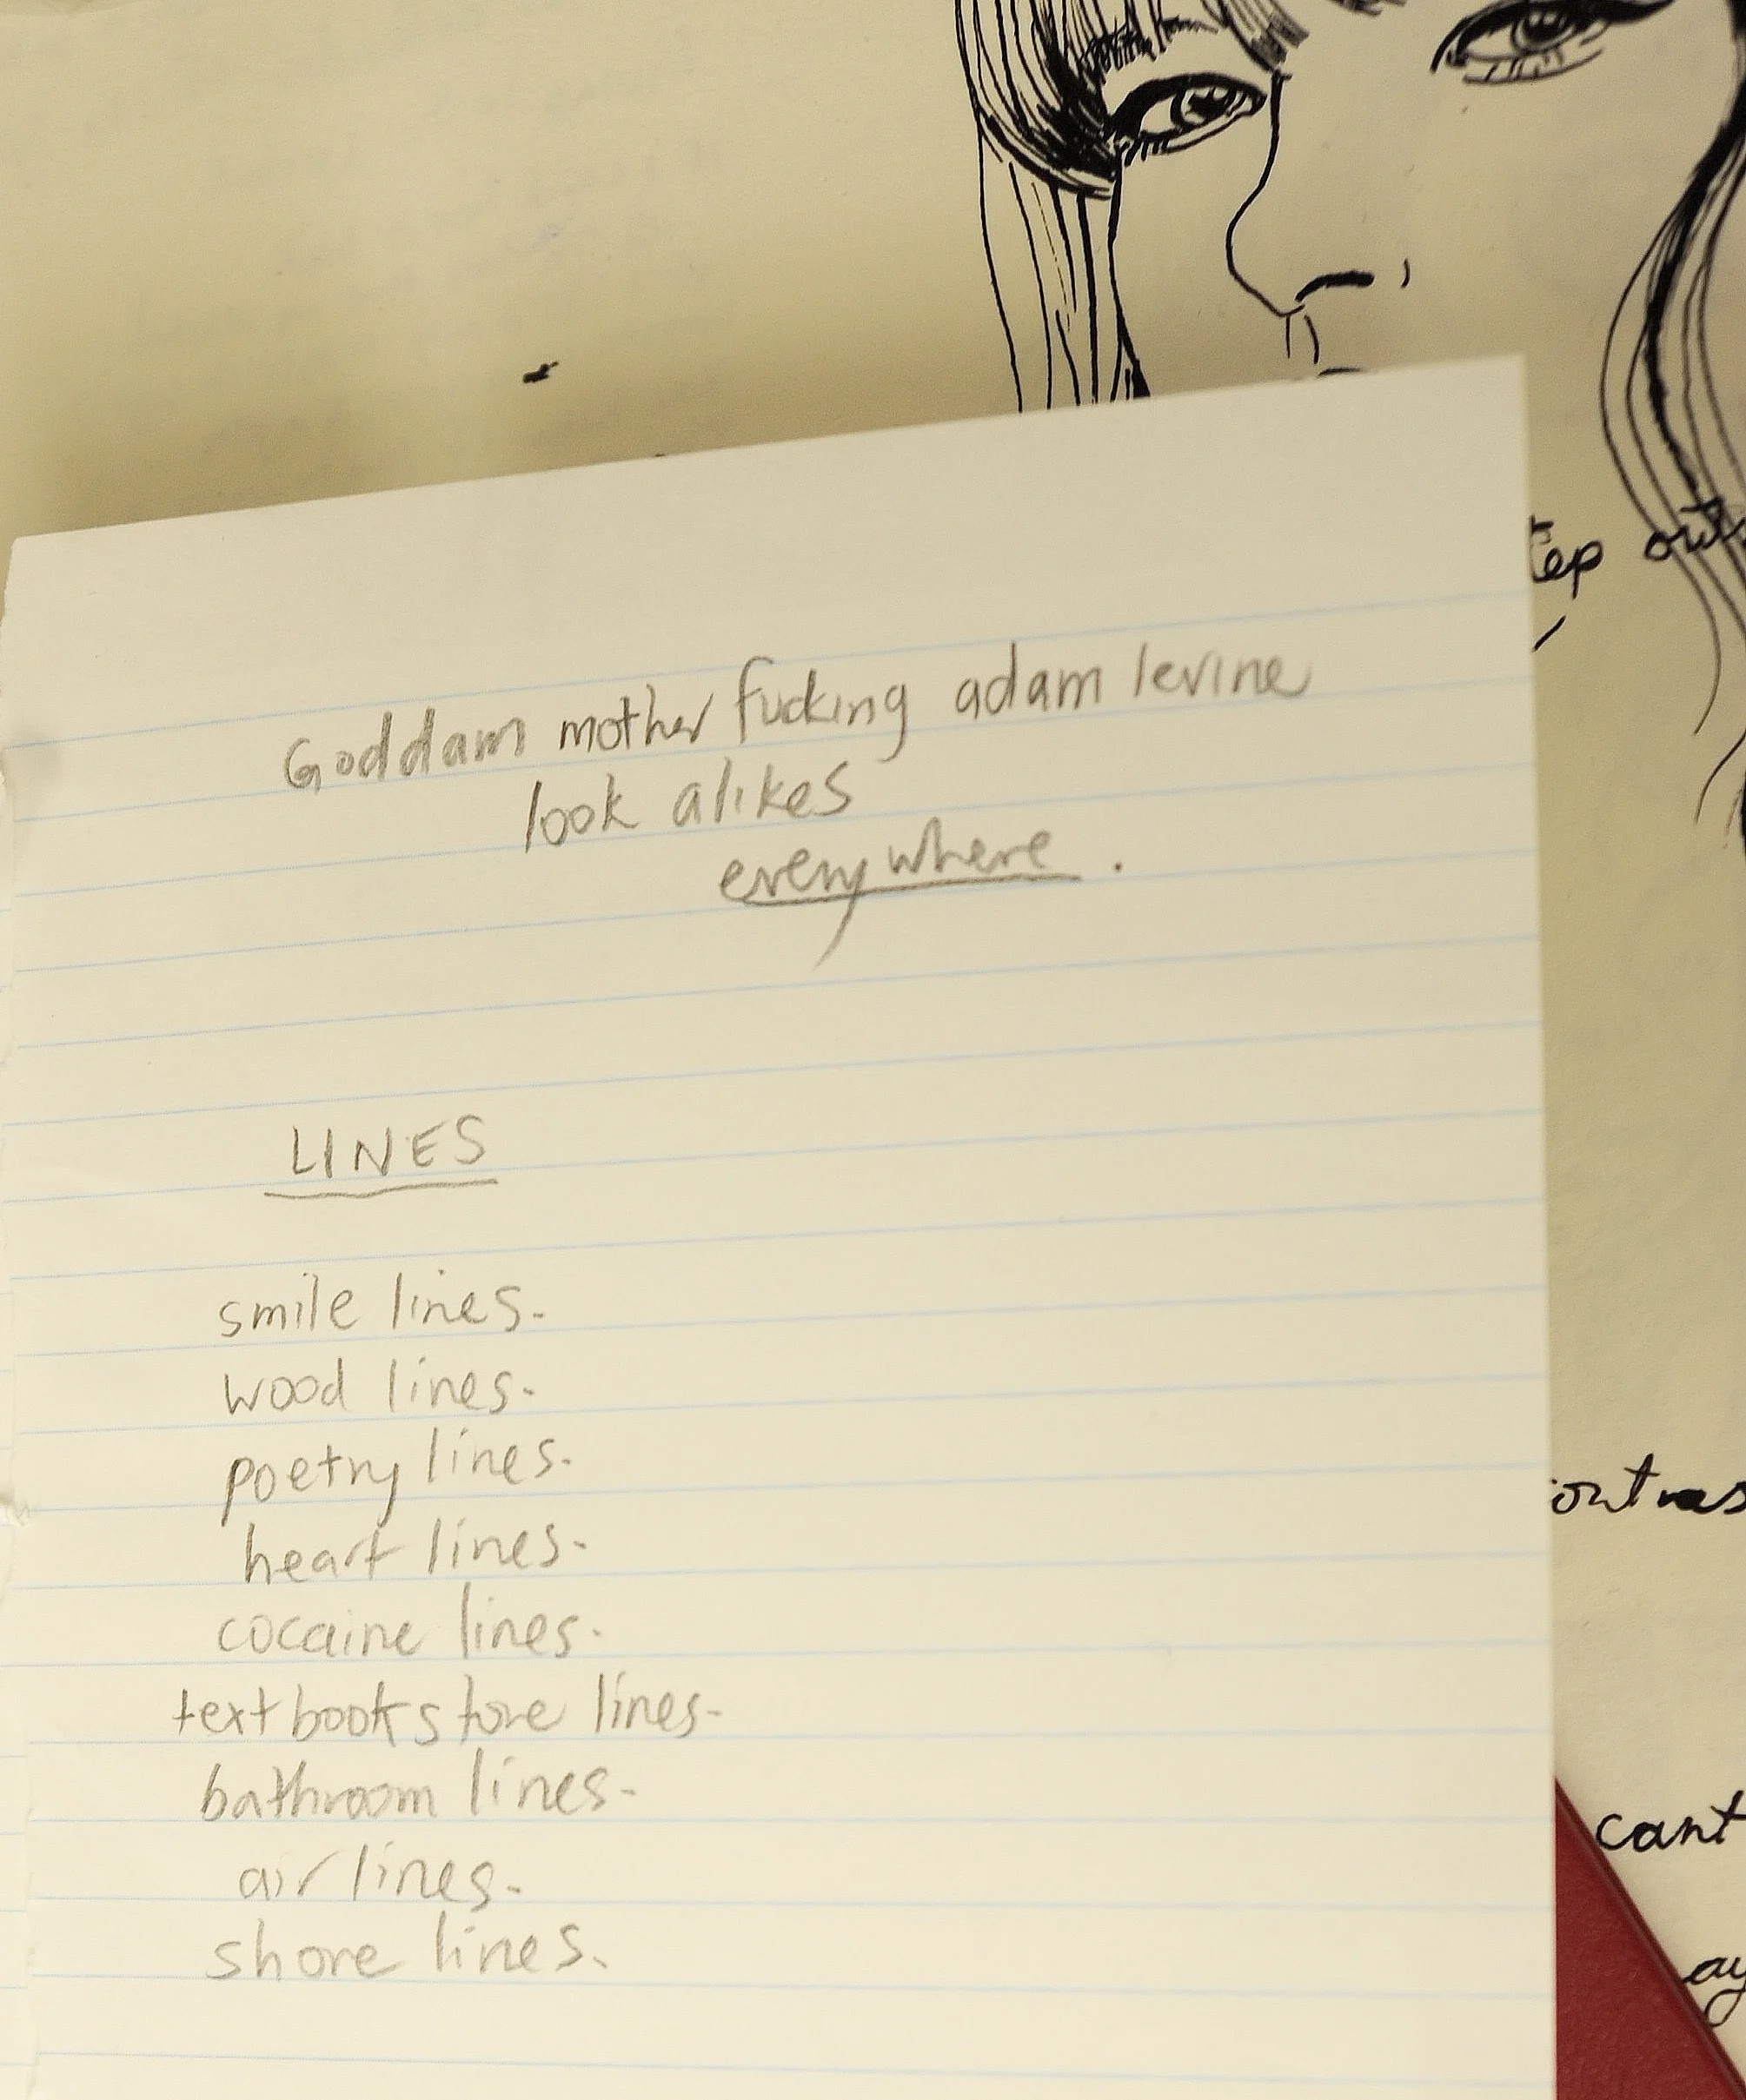 Goddam mother fucking adam levine
look alikes
everywhere.
LINES
smile lines.
wood lines.
poetry lines.
heart lines.
cocaine lines.
textbookstore lines.
bathroom lines.
airlines.
shore lines.
tep out
cant
ay